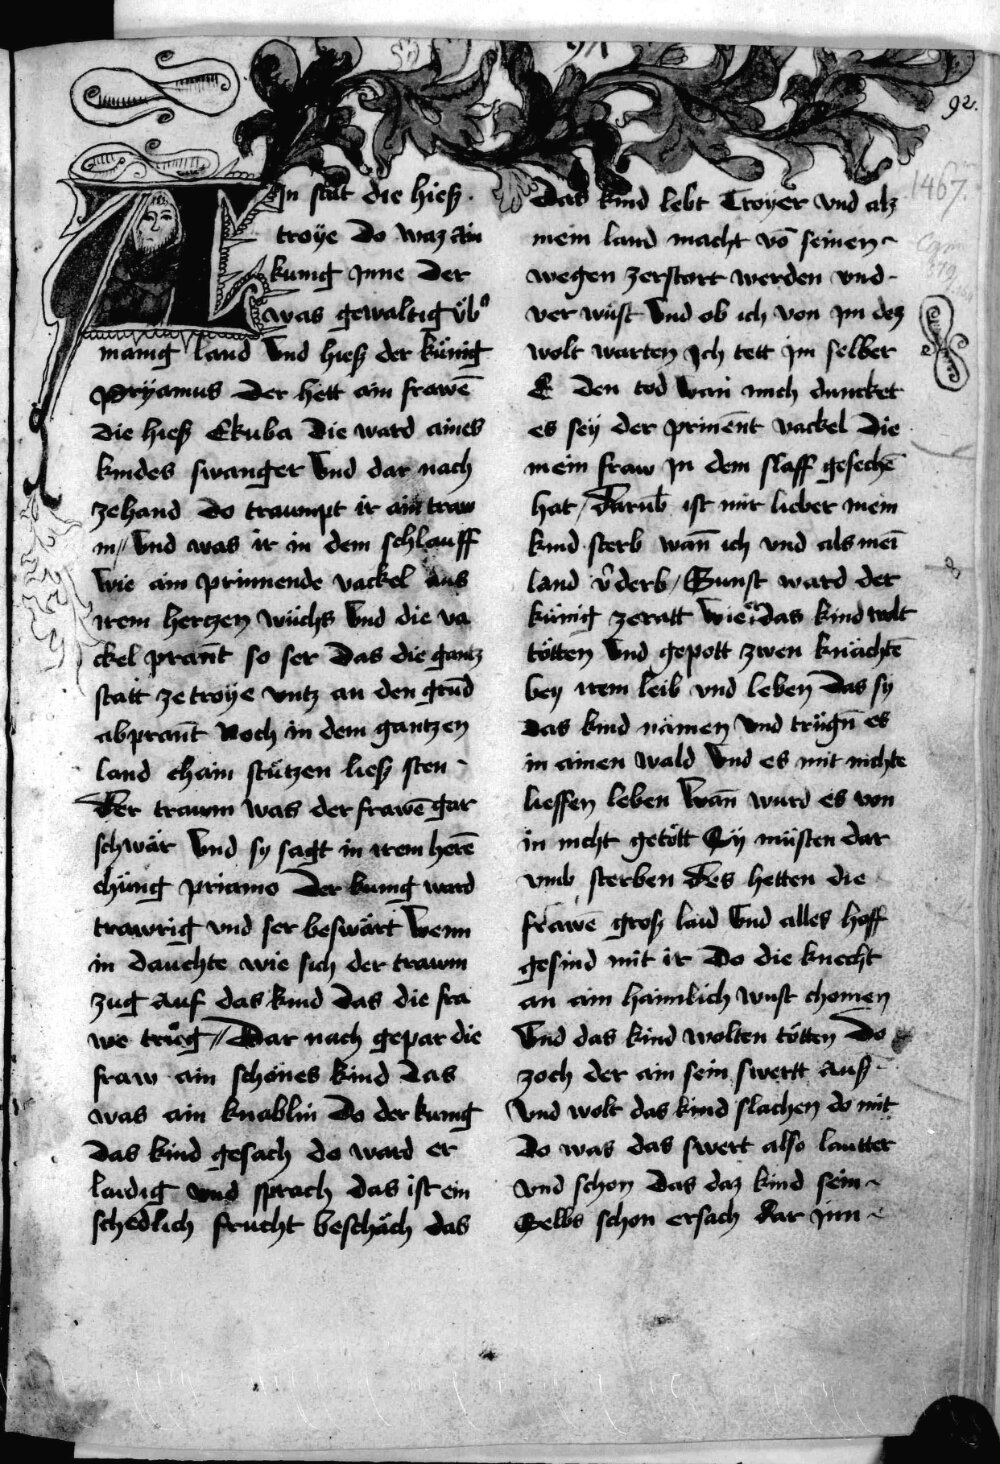 92.
1467.
Ain stat die hieß
troÿe Do waz ain
kunig Inne Der
was gewaltig vͤb
manig land Vnd hieß der künig
Pryamus Der hett ain frawē
Die hieß Ekuba Die ward aines
kindes swanger Vnd dar nach
zehand Do traumpt ir ain traw
m // Vnd was ir in dem schlauff
wie ain prinnende vackel aus
irem hertzen wüchs Vnd die va
ckel prant so ser Das die gantz
statt ze troÿe vntz an den grūd
abprant Noch in dem gantzen
land chain stützen ließ sten
Der traum was der frawē gar
schwär Vnd sy sagt in irem herē
chüng priamo Der kunig ward
trawrig vnd ser beswärt Wenn
in dauchte wie sich der trawm
zug auf das kind Das die fra
we trüg // Dar nach gepar die
fraw ain schönes kind Das
was ain knablin Do der kunig
Das kind gesach do ward er
laidig vnd sprach das ist ein
schedlich frucht beschäch das
Das kind lebt Troÿer vnd alz
mein land macht vō seinen
wegen zerstort werden vnd
ver wüst Vnd ob ich von im dez
wolt warten Ich tett im selber
E den tod Wan mich duncket
es seÿ der prinēnt vackel Die
mein fraw In dem slaff gesechē
hat / Darub ist mir lieber mein
kind sterb wan ich vnd als mei
land vderb / Sunst ward der
künig ze ratt wie er das kind wolt
tötten Vnd gepott zwen knächtē
bey irem leib vnd leben Das sy
das kind nämen Vnd trügn es
in ainen wald Vnd es mit nichte
liessen leben Wan wurd es von
in nicht getött Sÿ müsten dar
vmb sterben Des hetten die
frawē groß laid Vnd alles hoff
gesind mit ir Do die knecht
an ain haimlich wust chomen
Vnd das kind wolten tötten Do
zoch der ain sein swertt auß
Vnd wolt das kind slachen do mit
Do was das swert also lautter
vnd schon Das daz kind sein
Selbs schon ersach dar inn